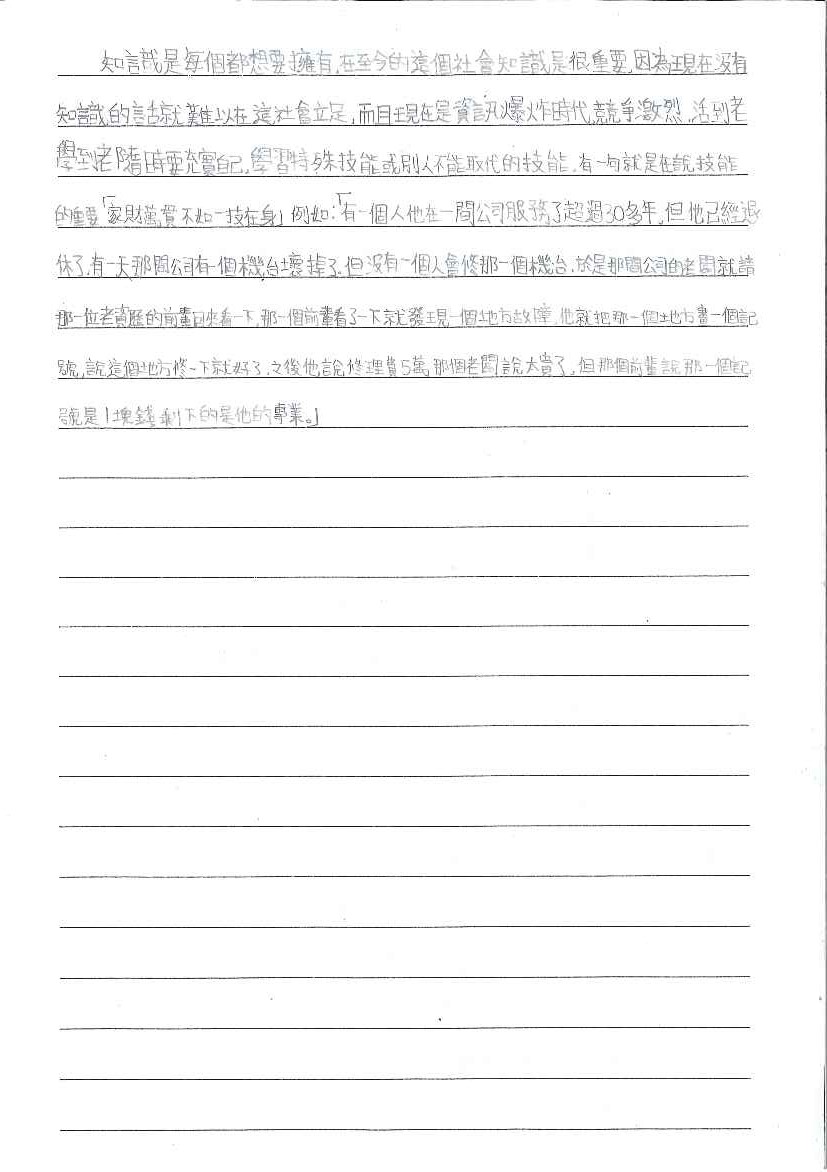 知識是每個都想要擁有,在至今的這個社會知識是很重要,因為現在沒有
知識的話就難以在這社會立足,而且現在是資訊爆炸時代,競爭激烈,活到老
學到老隨時要充實自己,學習特殊技能或別人不能取代的技能,有一句就是在說技能
的重要「家財萬貫不如一技在身」例如:「有一個人他在一間公司服務了超過30多年,但他已經退
休了,有一天那間公司有一個機台壞掉了,但沒有一個人會修那一個機台,於是那間公司的老闆就請
那一位老資歷的前輩回來看一下,那一個前輩看了一下就發現一個地方故障,他就把那一個地方畫一個記
號,說這個地方修一下就好了,之後他說修理費5萬,那個老闆說太貴了,但那個前輩說那一個記
號是1塊錢剩下的是他的專業。」